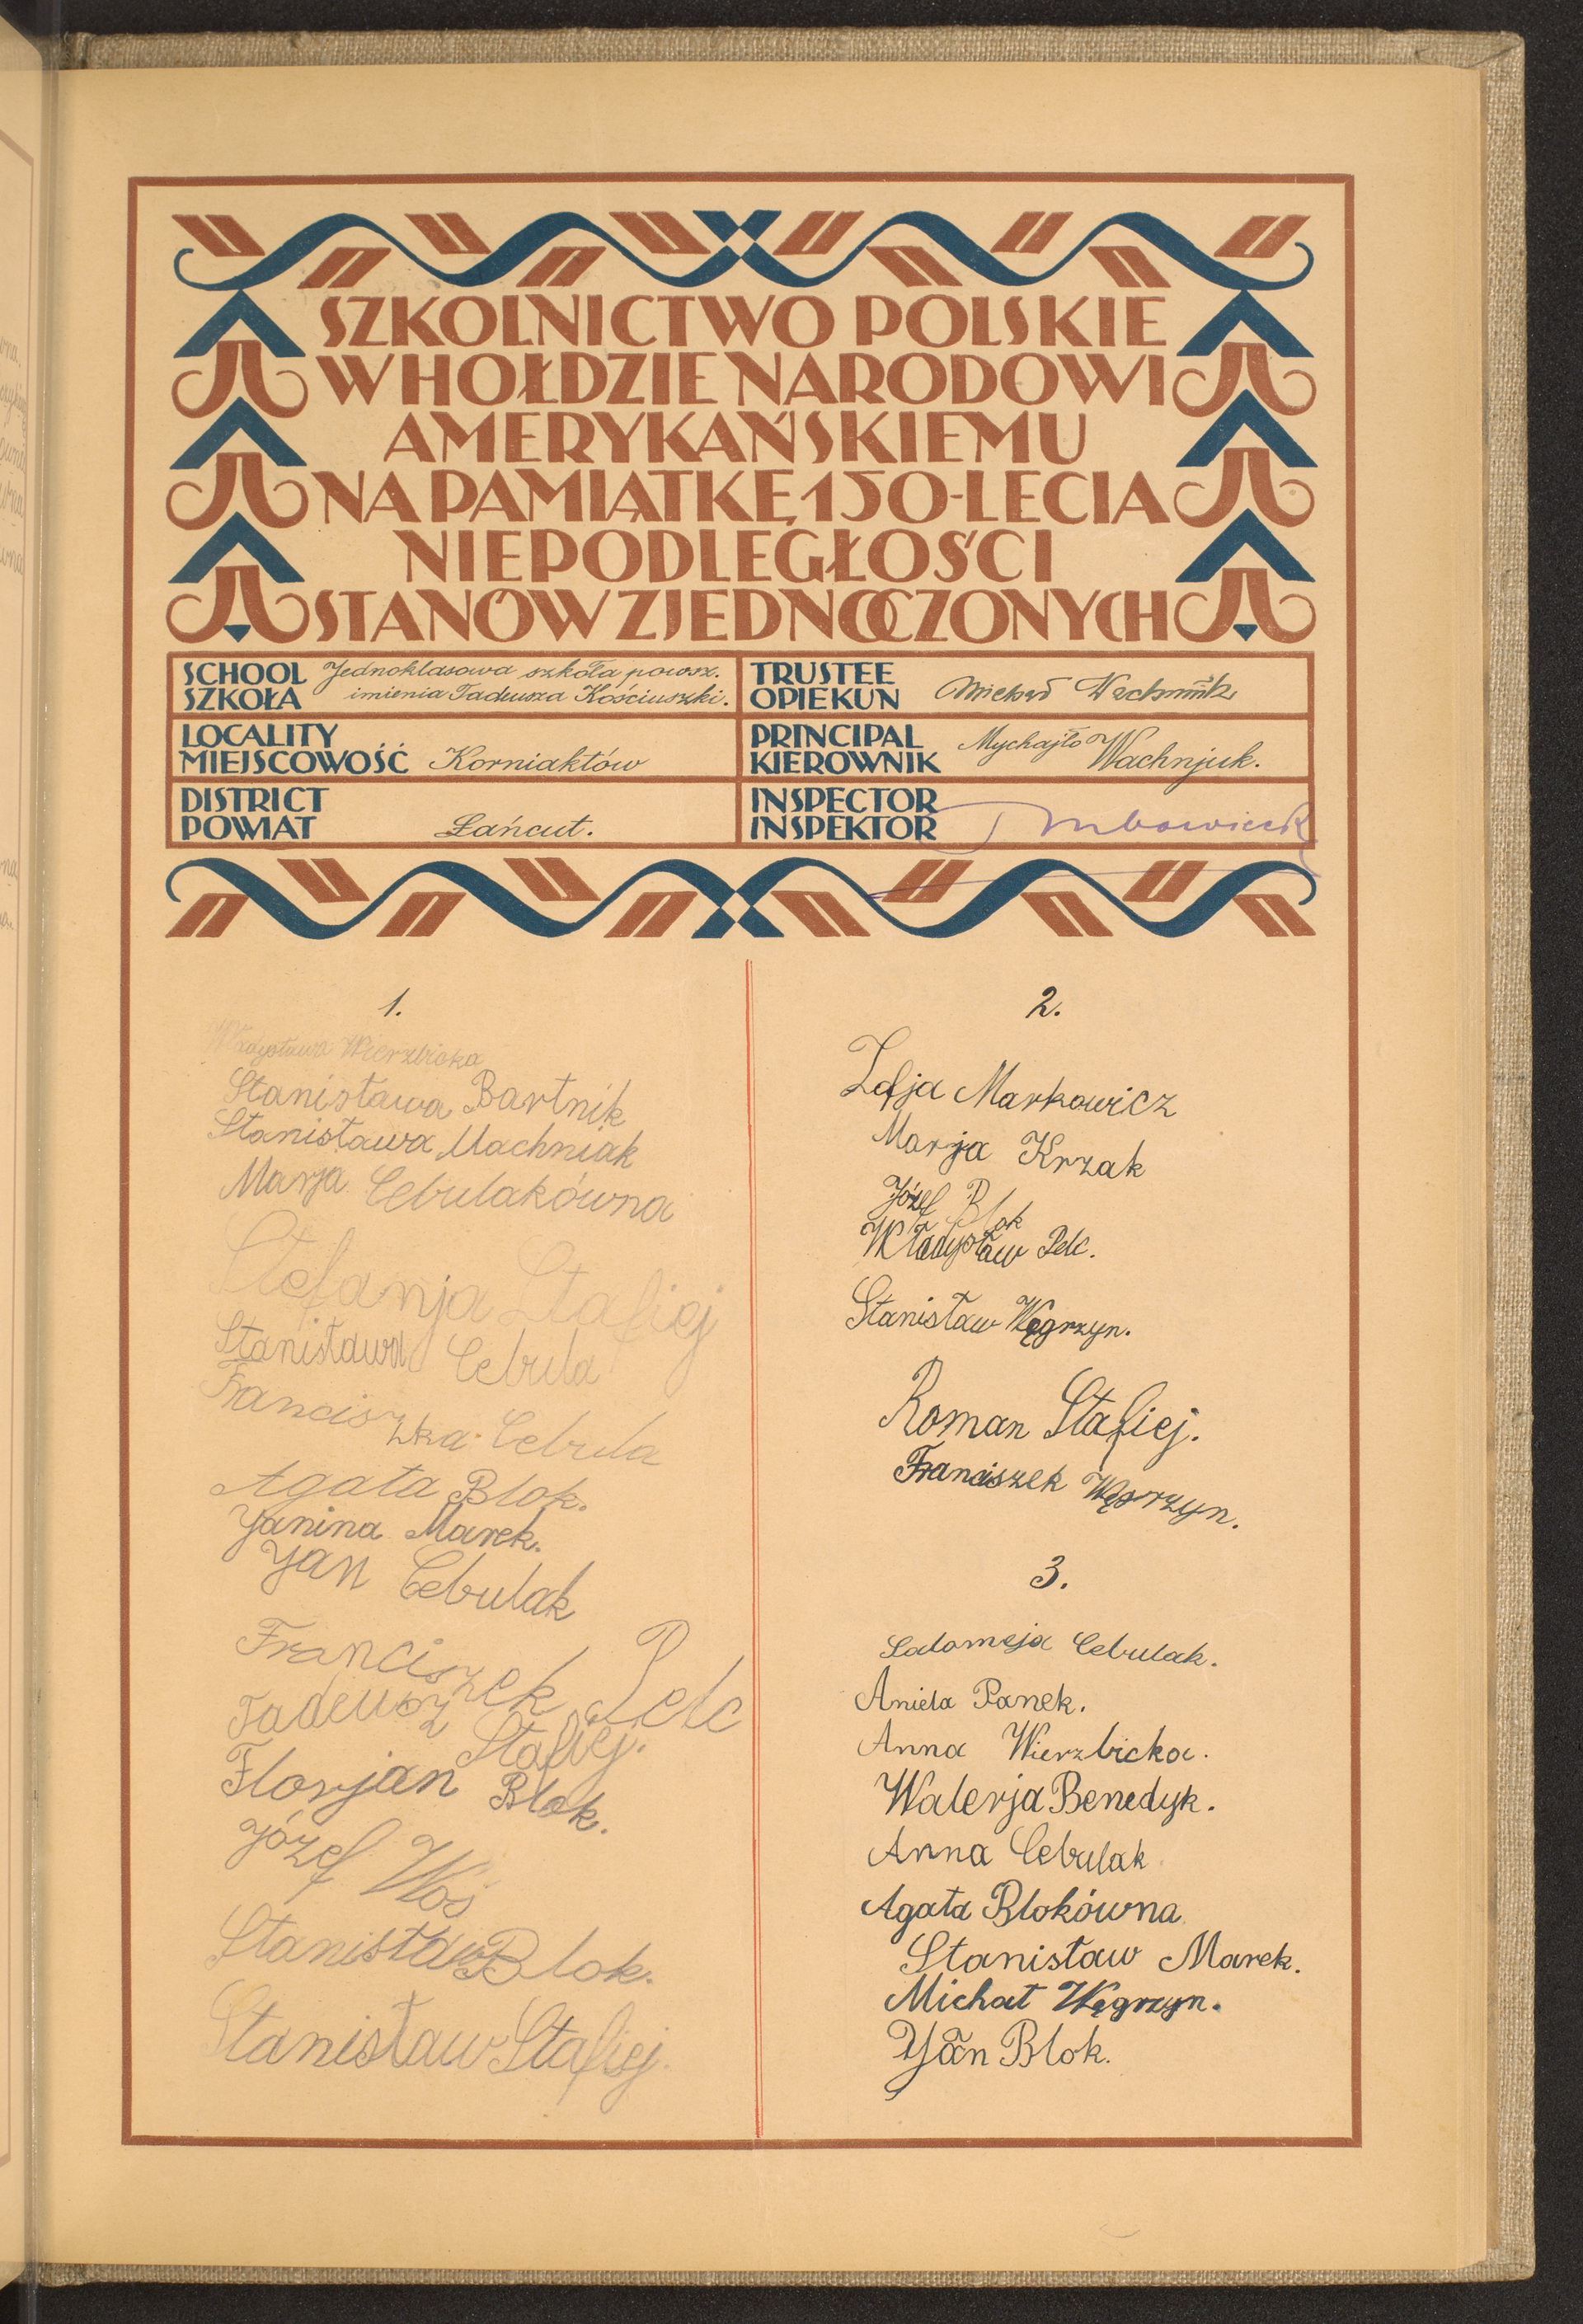 SZKOLNICTWO POLSKIE
W HOŁDZIE NARODOWI
AMERYKAŃSKIEMU
NA PAMIĄTKĘ 150-LECIA
NIEPODLEGŁOŚCI
STANÓW ZJEDNOCZONYCH
SCHOOL
SZKOŁA
Jednoklasowa szkoła powsz.
imienia Tadeusza Kościuszki.
TRUSTEE
OPIEKUN
LOCALITY
MIEJSCOWOŚĆ
Korniaktów
PRINCIPAL
KIEROWNIK
Mychajło Wachnjuk.
DISTRICT
POWIAT
Łańcut.
INSPECTOR
INSPEKTOR
1.
Władysława Wierzbicka
Stanisława Bartnik
Stanisława Machniak
Marja Cebulakówna
Stefanja Stafiej
Stanisława Cebula
Franciszka Cebula
Agata Blok.
Janina Marek.
Jan Cebulak
Franciszek Pelc
Tadeusz Stafiej.
Florjan Blok.
Józef Woś
Stanisław Blok.
Stanisław Stafiej.
2.
Zofja Markowicz
Marja Krzak
Józef Blok
Władysław Pelc.
Stanisław Węgrzyn.
Roman Stafiej.
Franciszek Węgrzyn.
3.
Salomeja Cebulak.
Aniela Panek.
Anna Wierzbicka.
Walerja Benedyk.
Anna Cebulak
Agata Blokówna
Stanisław Marek.
Michał Węgrzyn.
Jan Blok.